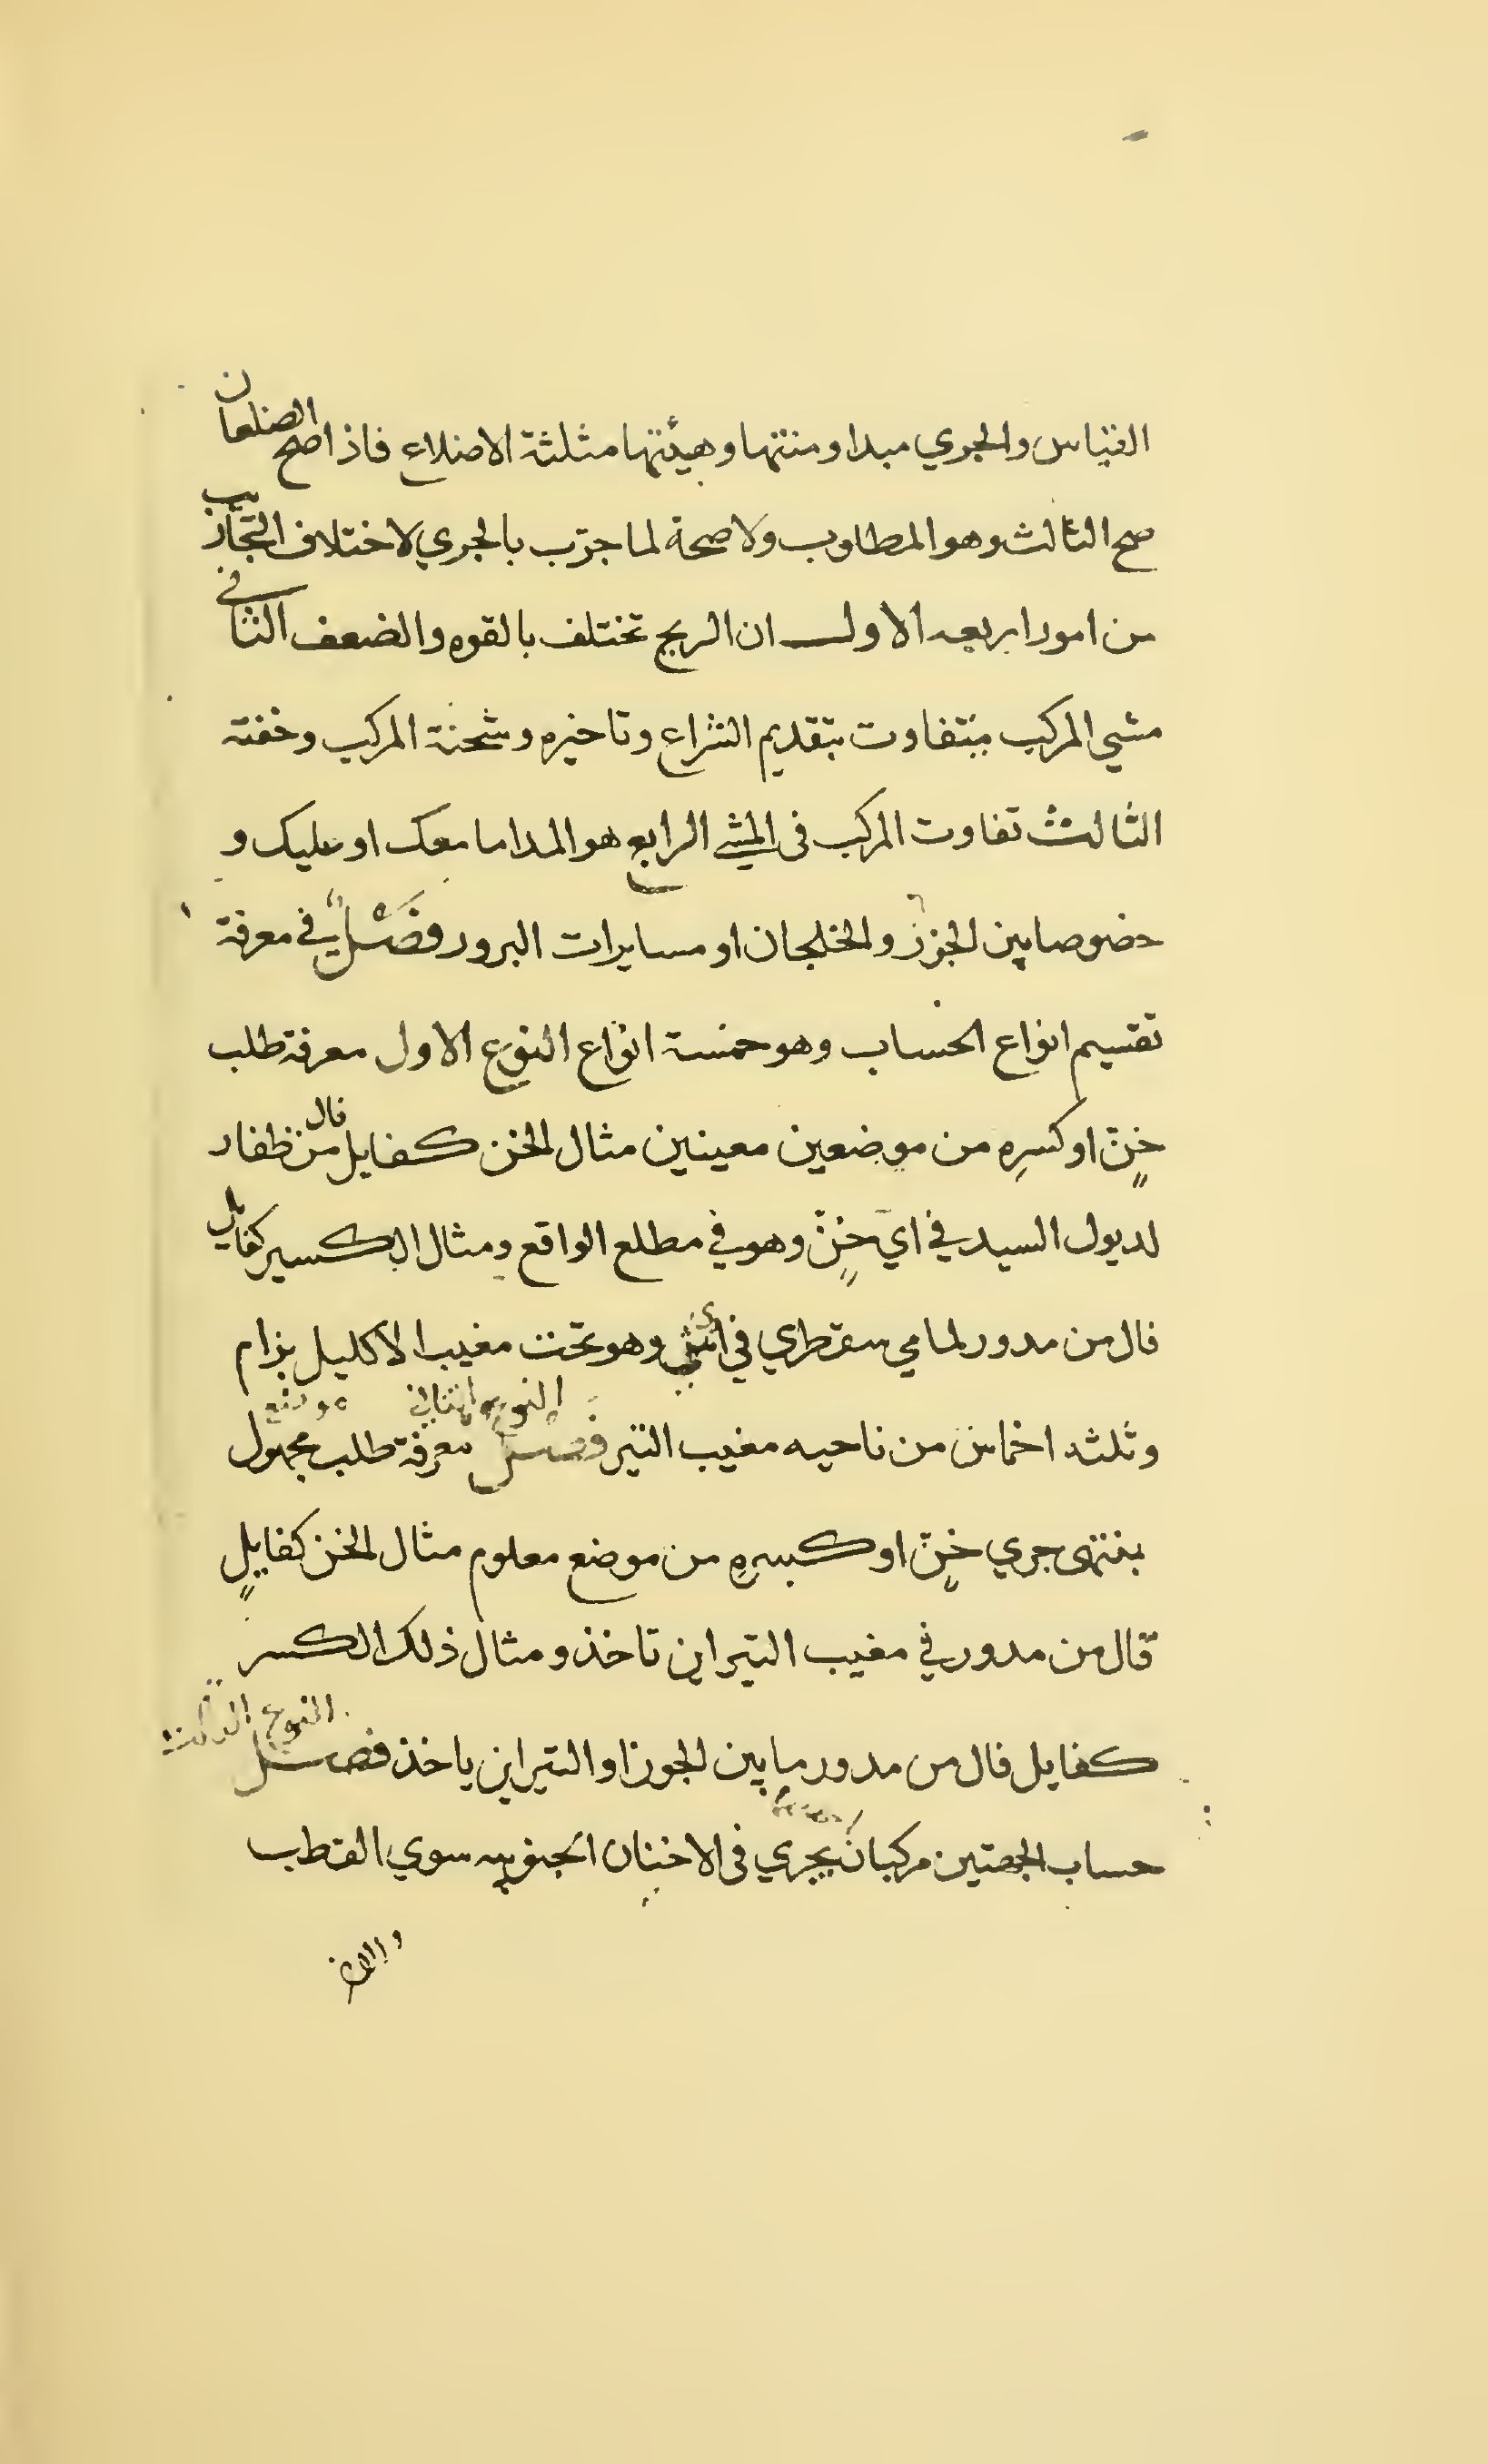 القياس والجري مبدا ومنتها وهيئتها مثلثة الاضلاع فاذا صح الضلعان
صح الثالث وهو المطلوب ولا صحة لما جرّب بالجري لاختلاف التجاريب
من امور اربعه الاول ان الريح تختلف بالقوه والضعف الثاني
مشي المركب يتفاوت بتقديم الشراع وتاخيره وشحنة المركب وخفته
الثالث تفاوت المركب في المشي الرابع هو المد اما معك او عليك و
خصوصا بين الجزر والخلجان او مسايرات البرور فصل في معرفة
تقسيم انواع الحساب وهو خمسة انواع النوع الاول معرفة طلب
خنّ او كسره من موضعين معينين مثال الخن كقايل قال من ظفار
لديول السيد في اي خنّ وهو في مطلع الواقع ومثال الكسير كقايل
قال من مدور لمامي سقطري في اي شي وهو تحت مغيب الاكليل بزام
وثلثه اخماس من ناحيه مغيب التير فصل النوع الثاني معرفة طلب موضع مجهول
بمنتهى جري خنّ او كسره من موضع معلوم مثال الخن كقايل
قال من مدور في مغيب التير اين تاخذ ومثال ذلك الكسر
كقايل قال من مدور ما بين الجوزا والتير اين ياخذ فصل النوع الثالث
حساب الجهتين مركبان يجري في الاخنان الجنوبيه سوي القطب